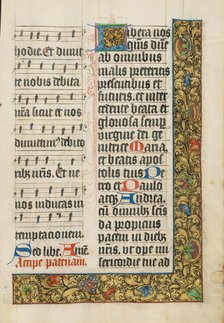 hodie. Et dimit
te nobis debita
nr̃a sicut et nos
dimittim9 debito
ribz nr̃is. Et ne
nos inducas in
temptacionem.
Sed libe. Amẽ.
Accipe patenam.
Libera nos
qs̃ dñe
ab omnibus
malis preteritis
presentibus et
futuris. et inter
cedente beata et
gloriosa semp
virgine dei ge
nitrice Maria.
et beatis apos
tolis tuis Petro
et Paulo
atqz Andrea.
cũ omnibz sctis
da propicius
pacem in diebz
nr̃is. ut ope mi
sericordie tue ad